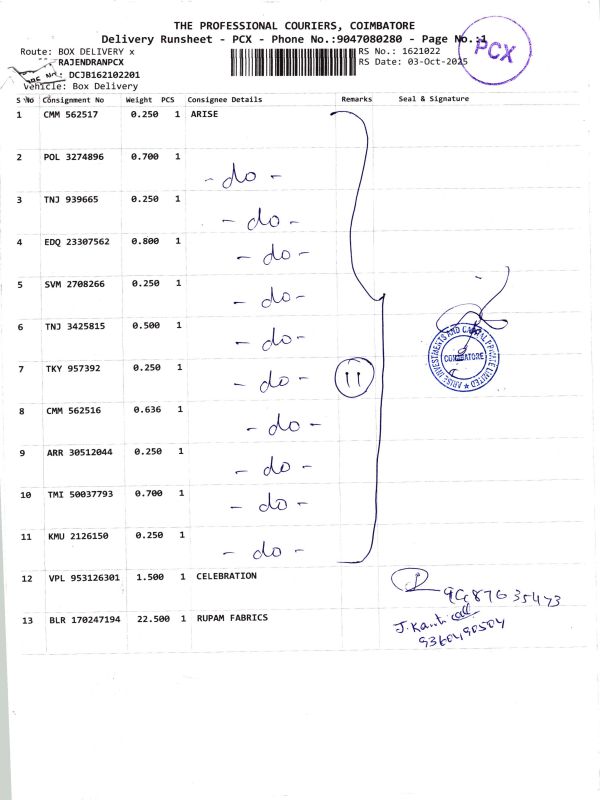 THE PROFESSIONAL COURIERS, COIMBATORE
Delivery Runsheet - PCX - Phone No.:9047080280 - Page No.:1
PCX
Route: BOX DELIVERY x
RS No.: 1621022
RAJENDRANPCX
RS Date: 03-Oct-2025
DCJB162102201
Vehicle: Box Delivery
S No Consignment No Weight PCS Consignee Details Remarks Seal & Signature
1 CMM 562517 0.250 1 ARISE
2 POL 3274896 0.700 1 - do -
3 TNJ 939665 0.250 1 - do -
4 EDQ 23307562 0.800 1 - do -
5 SVM 2708266 0.250 1 - do -
6 TNJ 3425815 0.500 1 - do -
ARISE INVESTMENTS AND CAPITAL PRIVATE LIMITED
COIMBATORE
7 TKY 957392 0.250 1 - do - 11
8 CMM 562516 0.636 1 - do -
9 ARR 30512044 0.250 1 - do -
10 TMI 50037793 0.700 1 - do -
11 KMU 2126150 0.250 1 - do -
12 VPL 953126301 1.500 1 CELEBRATION
13 BLR 170247194 22.500 1 RUPAM FABRICS
9360490504